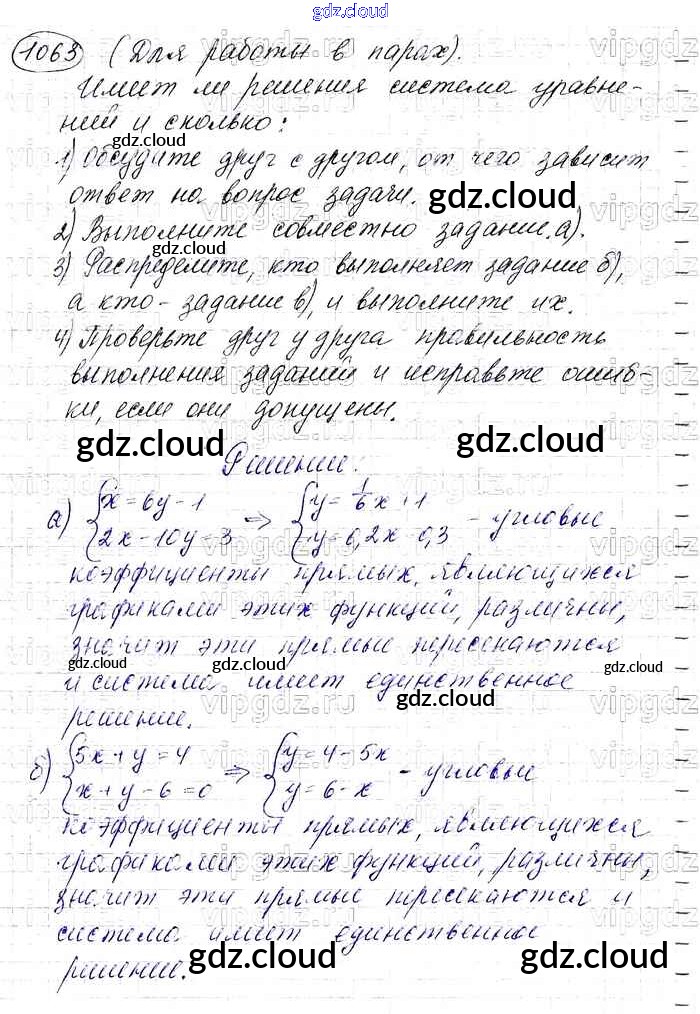 gdz.cloud
1063 (Для работы в парах).
Имеет ли решения система уравне-
ний и сколько:
1) Обсудите друг с другом, от чего зависит
ответ на вопрос задачи.
2) Выполните совместно задание а).
3) Распределите, кто выполняет задание б),
а кто - задание в), и выполните их.
4) Проверьте друг у друга правильность
выполнения заданий и исправьте ошиб-
ки, если они допущены.
Решение:
а) {x = 6y - 1 => {y = 1/6 x + 1 - угловые
{2x - 10y = 3 {y = 0,2x - 0,3
коэффициенты прямых, являющихся
графиками этих функций, различны,
значит эти прямые пересекаются
и система имеет единственное
решение.
б) {5x + y = 4 => {y = 4 - 5x - угловые
{x + y - 6 = 0 {y = 6 - x
коэффициенты прямых, являющихся
графиками этих функций, различны,
значит эти прямые пересекаются и
система имеет единственное
решение.